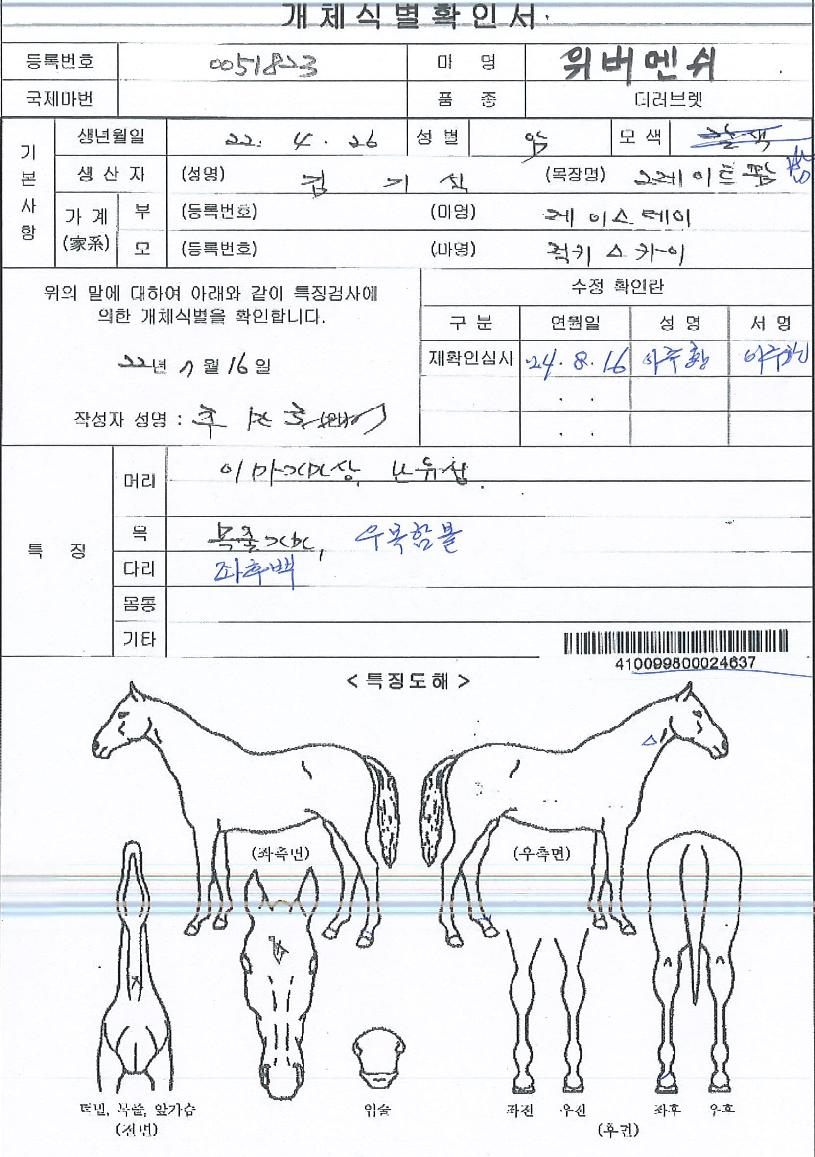 개체식별확인서
등록번호 0051823 마 명 위버멘쉬
국제마번 품 종 더러브렛
기본사항
생년월일 22. 4. 26 성별 암 모색 갈색 밤
생산자 (성명) 김기식 (목장명) 그레이트팜
가계(家系) 부 (등록번호) (마명) 레이스데이
모 (등록번호) (마명) 럭키스카이
위의 말에 대하여 아래와 같이 특징검사에
의한 개체식별을 확인합니다.
22년 7월 16일
작성자 성명 :
수정 확인란
구분 연월일 성명 서명
재확인심사 24. 8. 16
특징
머리
목 우목함블
다리 좌후백
몸통
기타
410099800024637
< 특징도해 >
(좌측면) (우측면)
턱밑, 목쓸, 앞가슴
(전면)
입술
좌전 우전 좌후 우후
(후면)